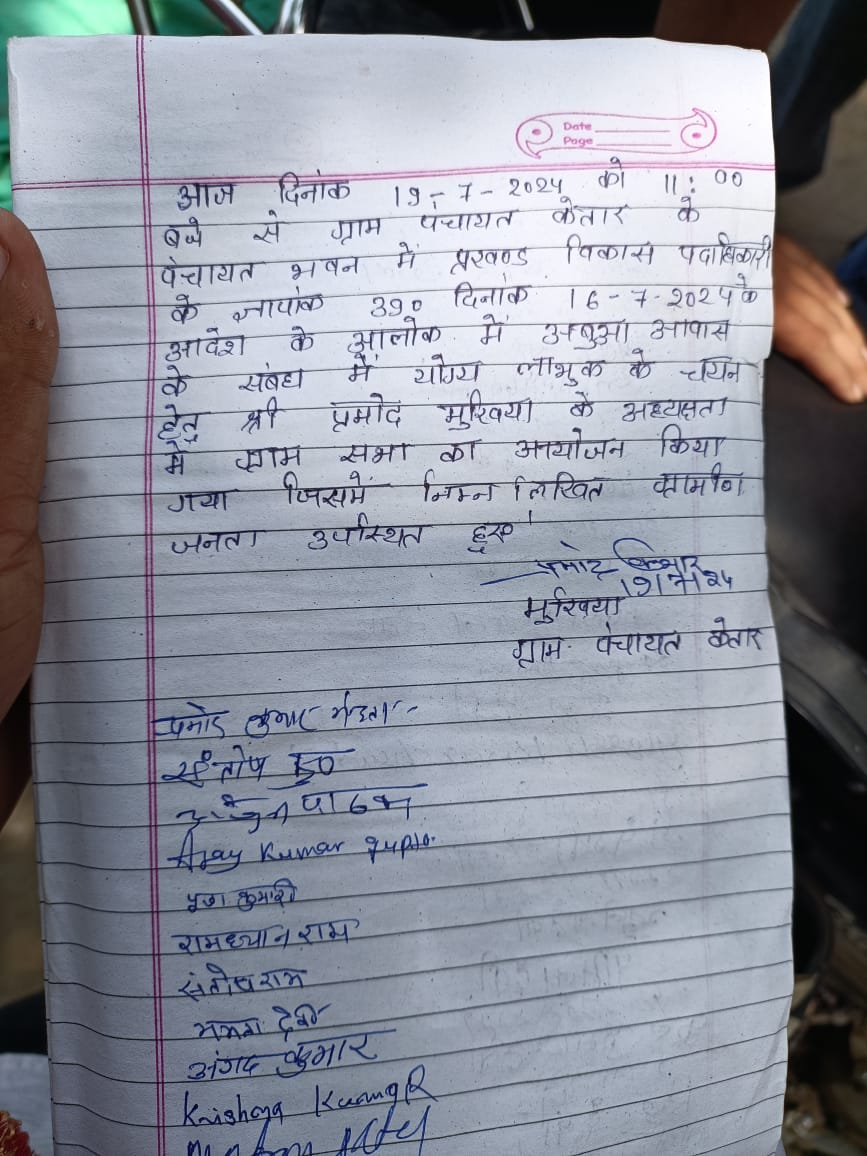 Date
Page
आज दिनांक 19-7-2024 को 11:00
बजे से ग्राम पंचायत केतार के
पंचायत भवन में प्रखण्ड विकास पदाधिकारी
के ज्ञापांक 390 दिनांक 16-7-2024 के
आदेश के आलोक में अबुआ आवास
के संबंध में योग्य लाभुक के चयन
हेतु श्री प्रमोद मुखिया के अध्यक्षता
में ग्राम सभा का आयोजन किया
गया जिसमें निम्न लिखित ग्रामीण
जनता उपस्थित हुए।
प्रमोद कुमार
19/7/24
मुखिया
ग्राम पंचायत केतार
प्रमोद कुमार मेहता
संतोष
Ajay Kumar Gupta
पूजा कुमारी
रामध्यान राम
संतोष राम
ममता देवी
अंगद कुमार
Krishna